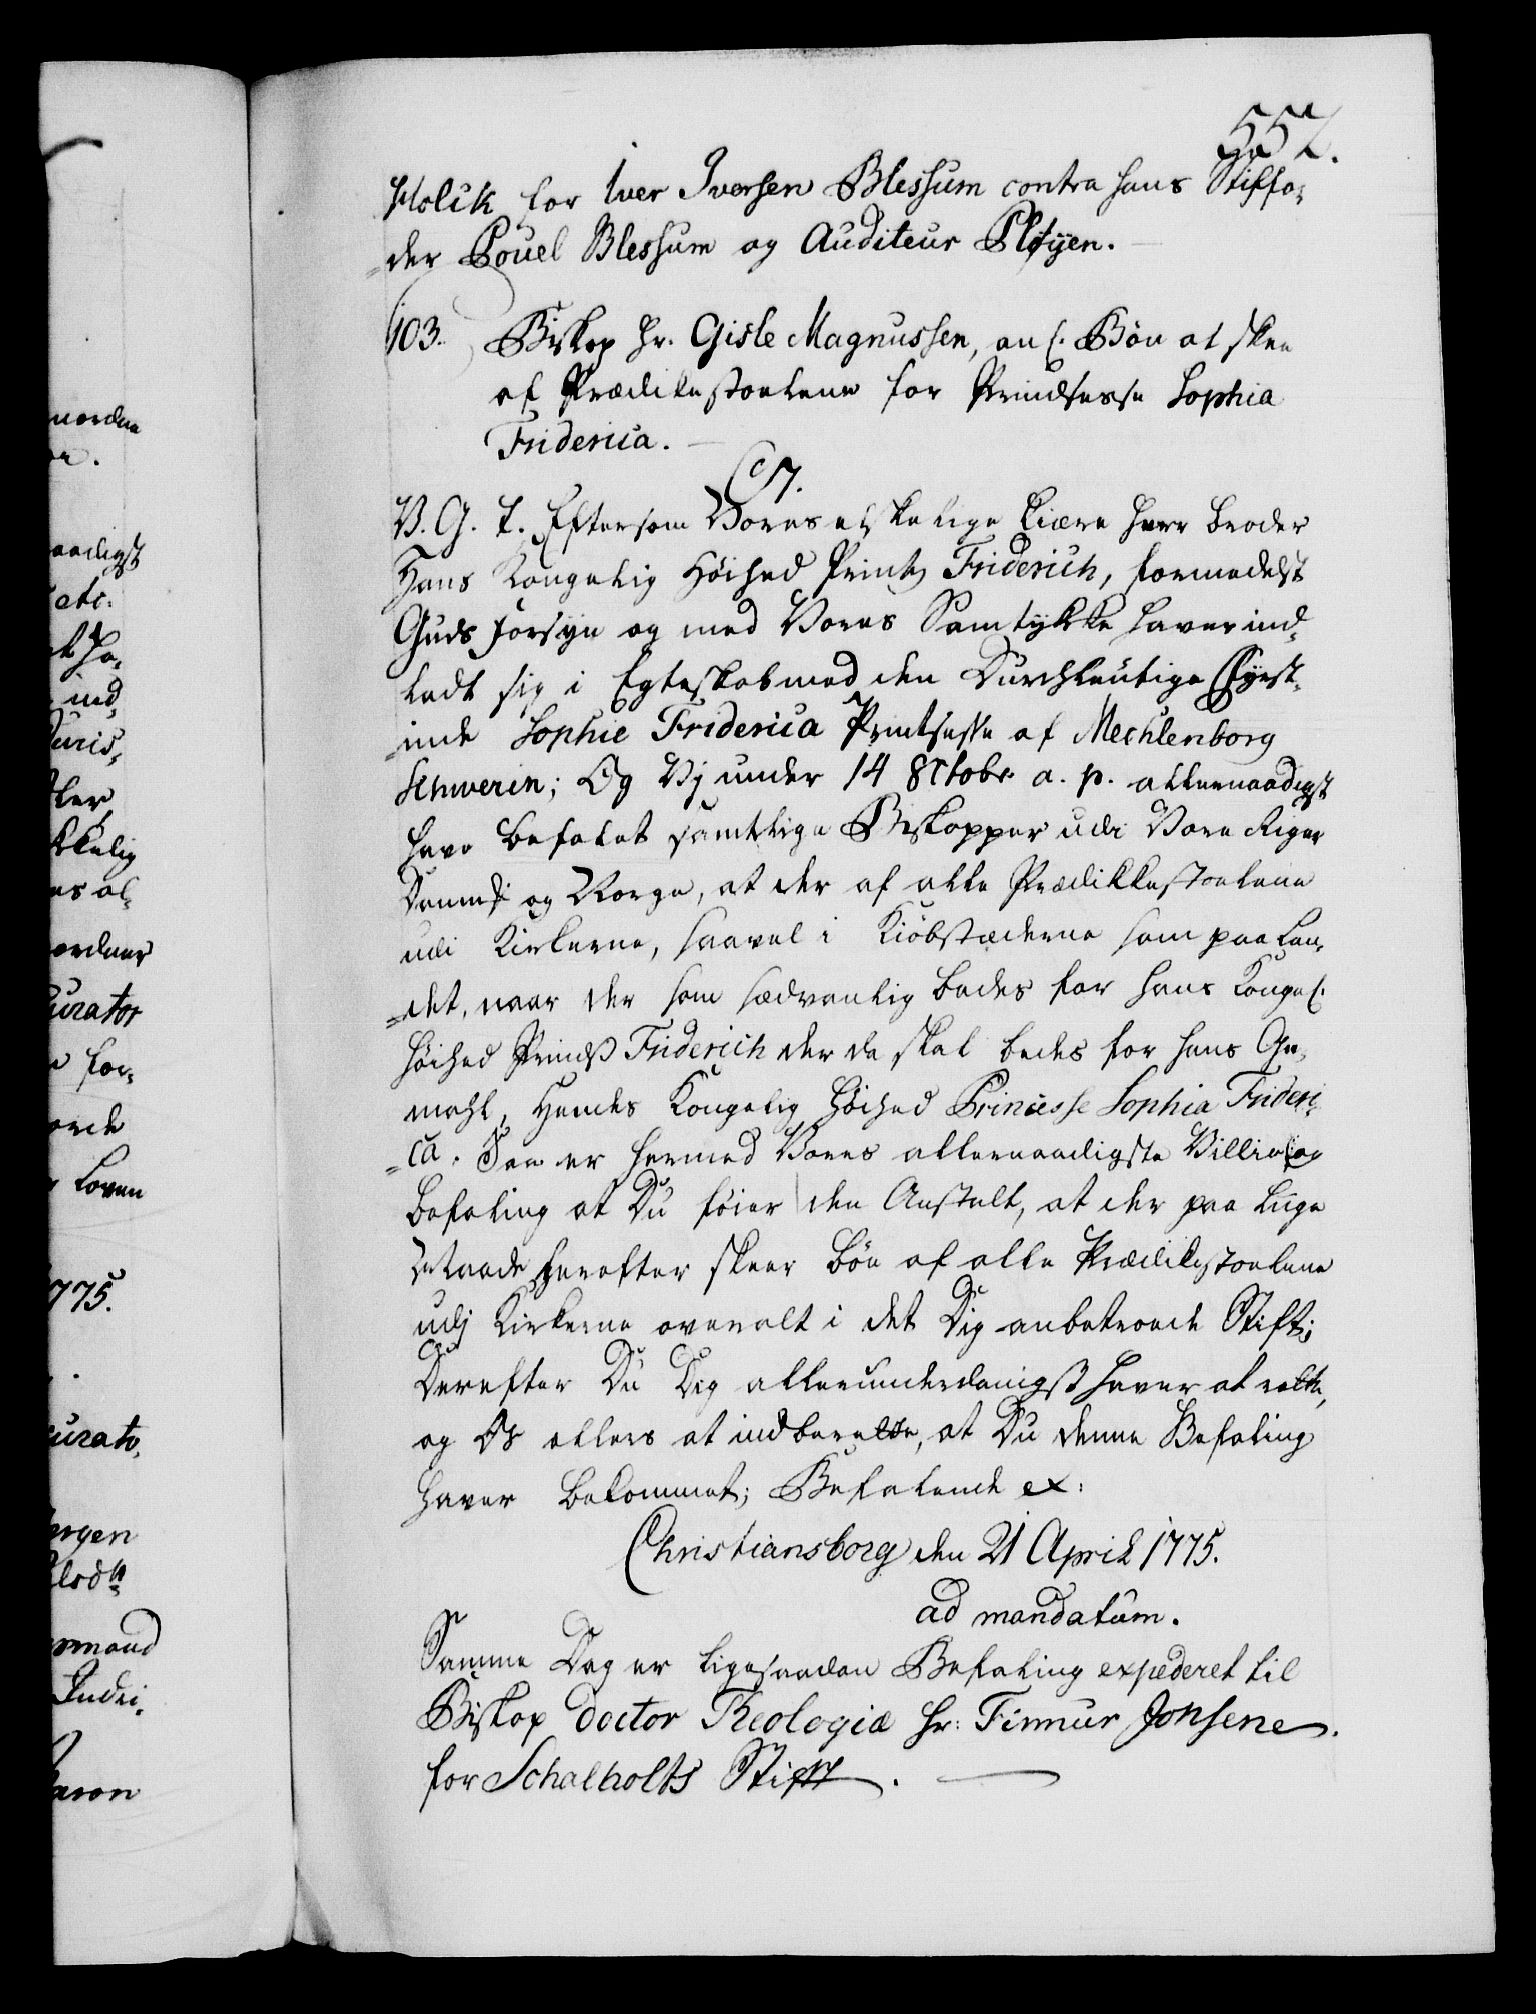 557.
Holck for Iver Iversen Blessum contra hans Stiffa-
der Povel Blessum og Auditeur Pløyen.
103. Biskop Hr. Gisle Magnussen, an l. Bön at skee
af Prædikestoelene for Prindsesse Sophia
Friderica.
C7.
V. G. T. Eftersom Vores elskelige kiære Herr Broder
Hans Kongelig Höihed Printz Friderich, formedelst
Guds Forsyn og med Vores Samtykke haver ind-
ladt sig i Egteskab med den Durchleutige Fyrst-
inde Sophie Friderica Printsesse af Mechlenborg
Schwerin; Og Vj under 14 8tobr a. p. allernaadigst
have befalet samtlige Biskopper udi Vore Riger
Danmk og Norge, at der af alle Prædikkestoelene
udi Kirkerne, saavel i Kiöbstæderne som paa Lan-
det, naar der som sædvanlig bedes for Hans Kongel.
Höihed Prinds Friderich der da skal bedes for hans Ge-
mahl, Hendes Kongelig Höihed Princesse Sophia Frideri-
ca. Saa er hermed Vores allernaadigste Villie og
Befaling at Du föier den Anstalt, at der paa liige
Maade herefter skeer Bön af alle Prædikestoelene
udj Kirkerne overalt i det Dig anbetroede Stift;
Derefter Du Dig allerunderdanigst haver at rette,
og Os ellers at indberette, at Du denne Befaling
haver bekommet; Befalende ex:
Christiansborg den 21 April 1775.
ad mandatum.
Samme Dag er ligesaadan Befaling expederet til
Biskop doctor Theologiæ Hr: Finnur Jonsene
for Schalholts Stift.